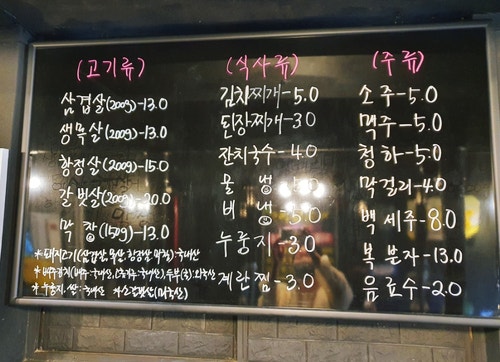 (고기류)
삼겹살(200g)-13.0
생목살(200g)-13.0
항정살(200g)-15.0
갈빗살(200g)-20.0
막창(150g)-13.0
* 돼지고기(삼겹살, 목살, 항정살, 막창)-국내산
* 배추김치(배추-국내산, 국내산), 두부(콩):외국산
* 누룽지, 쌀:국내산 (미국산)
(식사류)
김치찌개-5.0
된장찌개-3.0
잔치국수-4.0
물냉-5.0
비냉-5.0
누룽지-3.0
계란찜-3.0
(주류)
소주-5.0
맥주-5.0
청하-5.0
막걸리-4.0
백세주-8.0
복분자-13.0
음료수-2.0